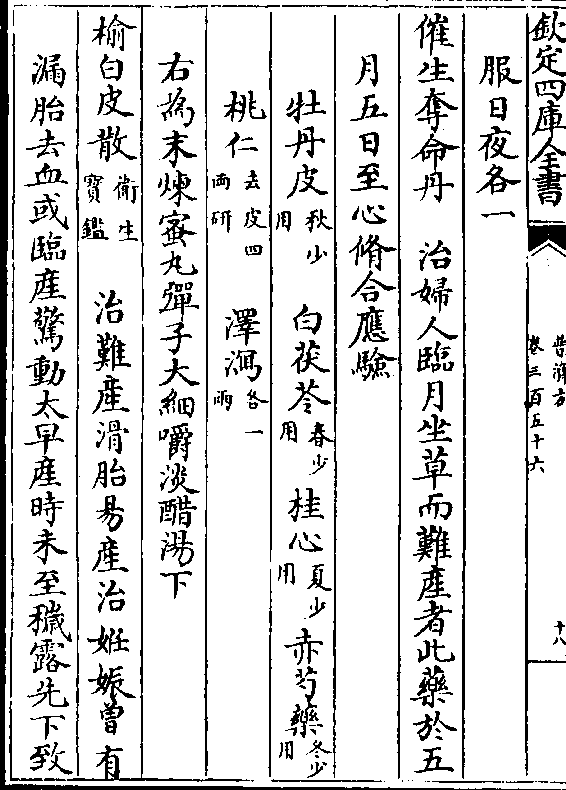 欽定四庫全書
普濟方
卷三百五十六
十八
服日夜各一
催生奪命丹 治婦人臨月坐草而難產者此藥於五
月五日至心脩合應驗
牡丹皮秋少用 白茯苓春少用 桂心夏少用 赤芍藥冬少用
桃仁去皮四兩研 澤瀉各一兩
右為末煉蜜丸彈子大細嚼淡醋湯下
榆白皮散衛生寶鑑 治難產滑胎易產治妊娠曾有
漏胎去血或臨產驚動太早產時未至穢露先下致